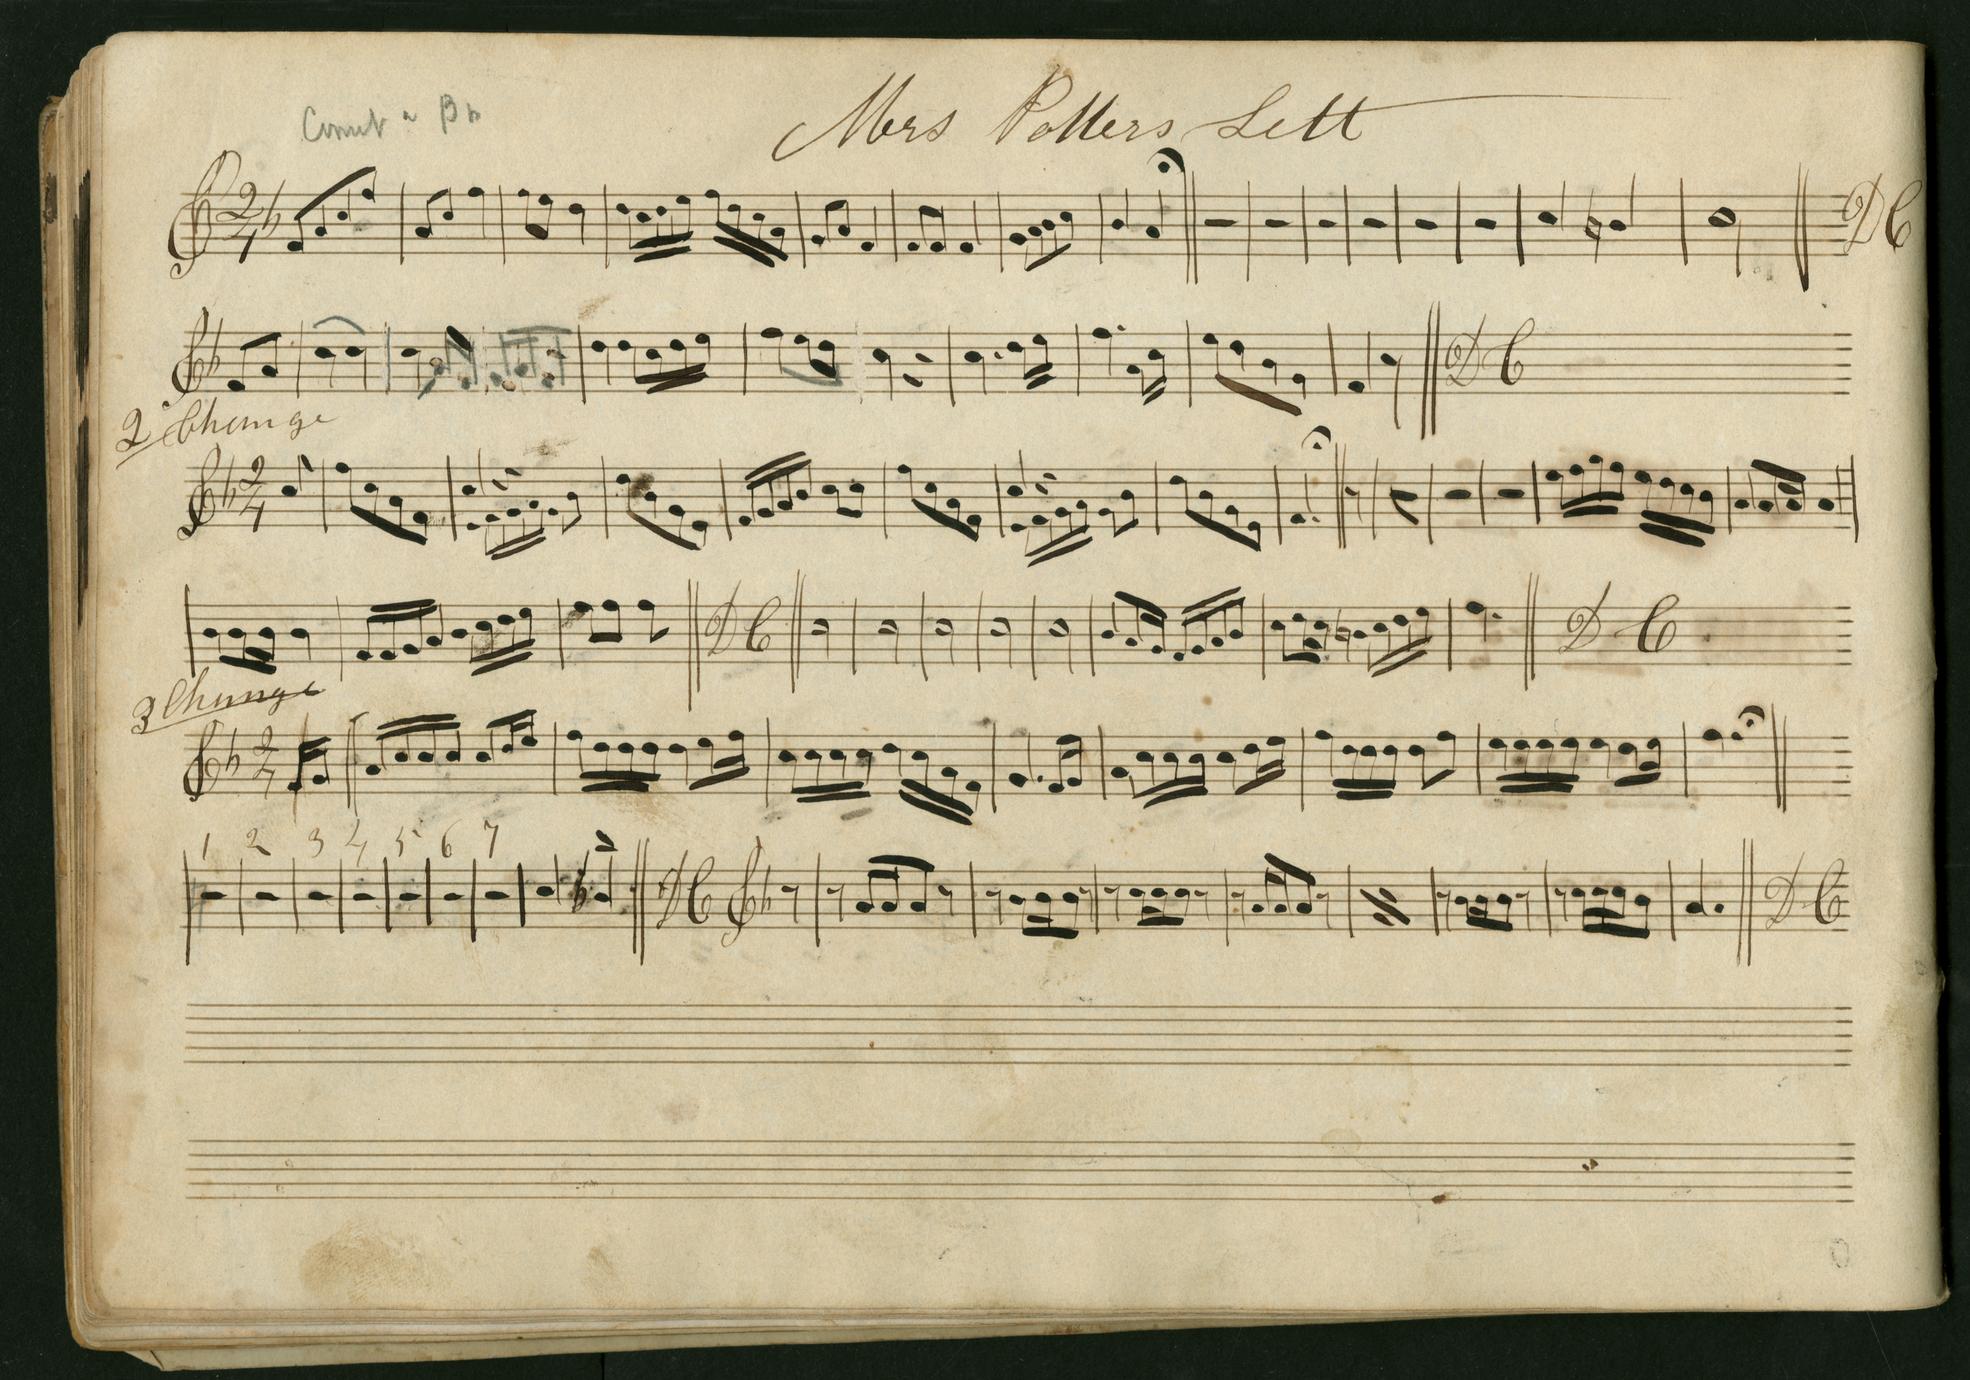 Cornet in Bb
Mrs Potters Sett
2/4
D C
D C
2 Change
2/4
D C
D C
3 Change
2/4
1 2 3 4 5 6 7
D C
D C